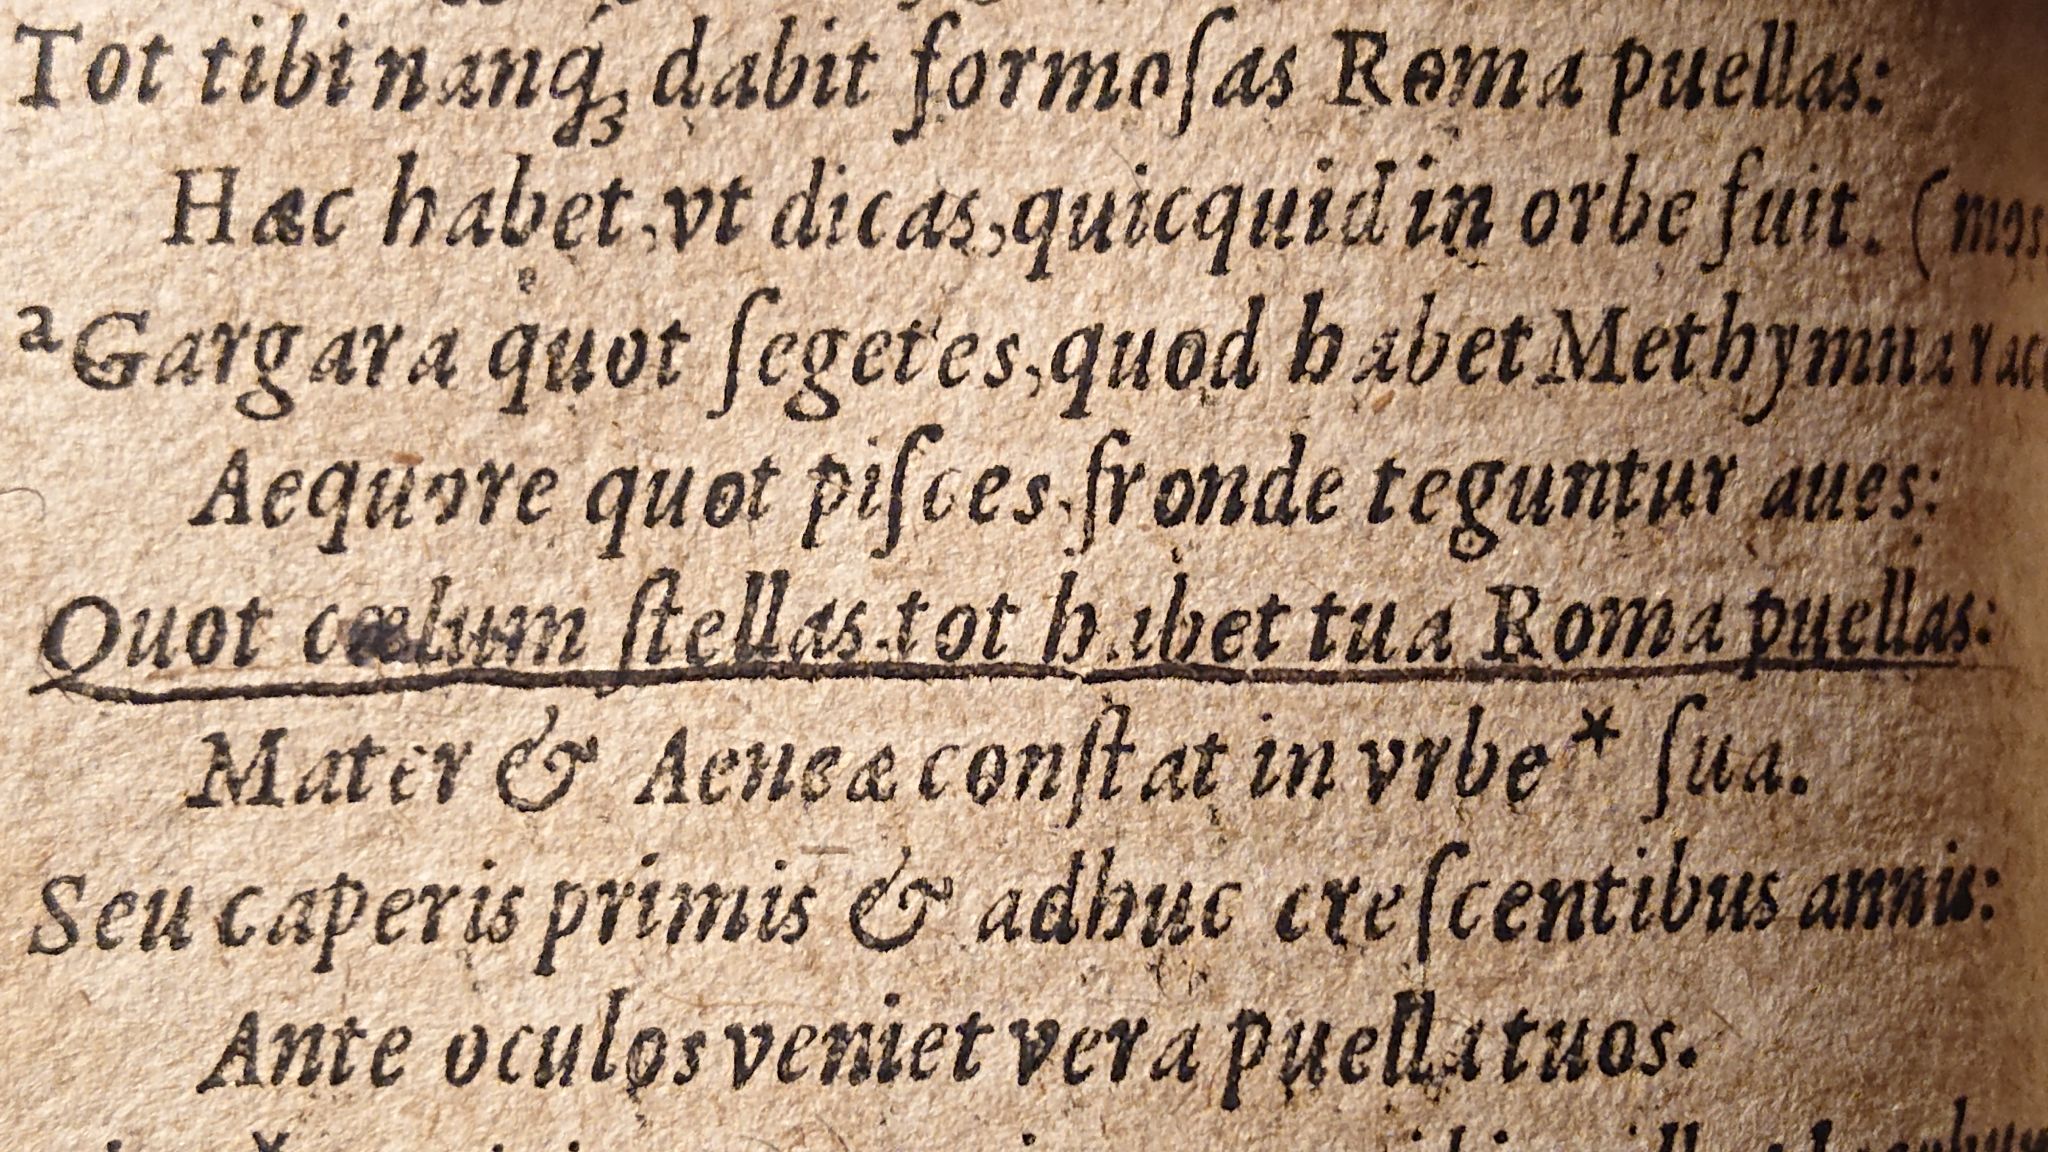 Tot tibi nanq́ꝫ dabit formoſas Roma puellas:
Hæc habet, vt dicas, quicquid in orbe fuit. (mos.
ᵃ Gargara quot ſegetes, quod habet Methymna race
Aequore quot piſces, fronde teguntur aues:
Quot cœlum ſtellas, tot habet tua Roma puellas:
Mater & Aeneæ conſtat in vrbe* ſua.
Seu caperis primis & adhuc creſcentibus annis:
Ante oculos veniet vera puella tuos.